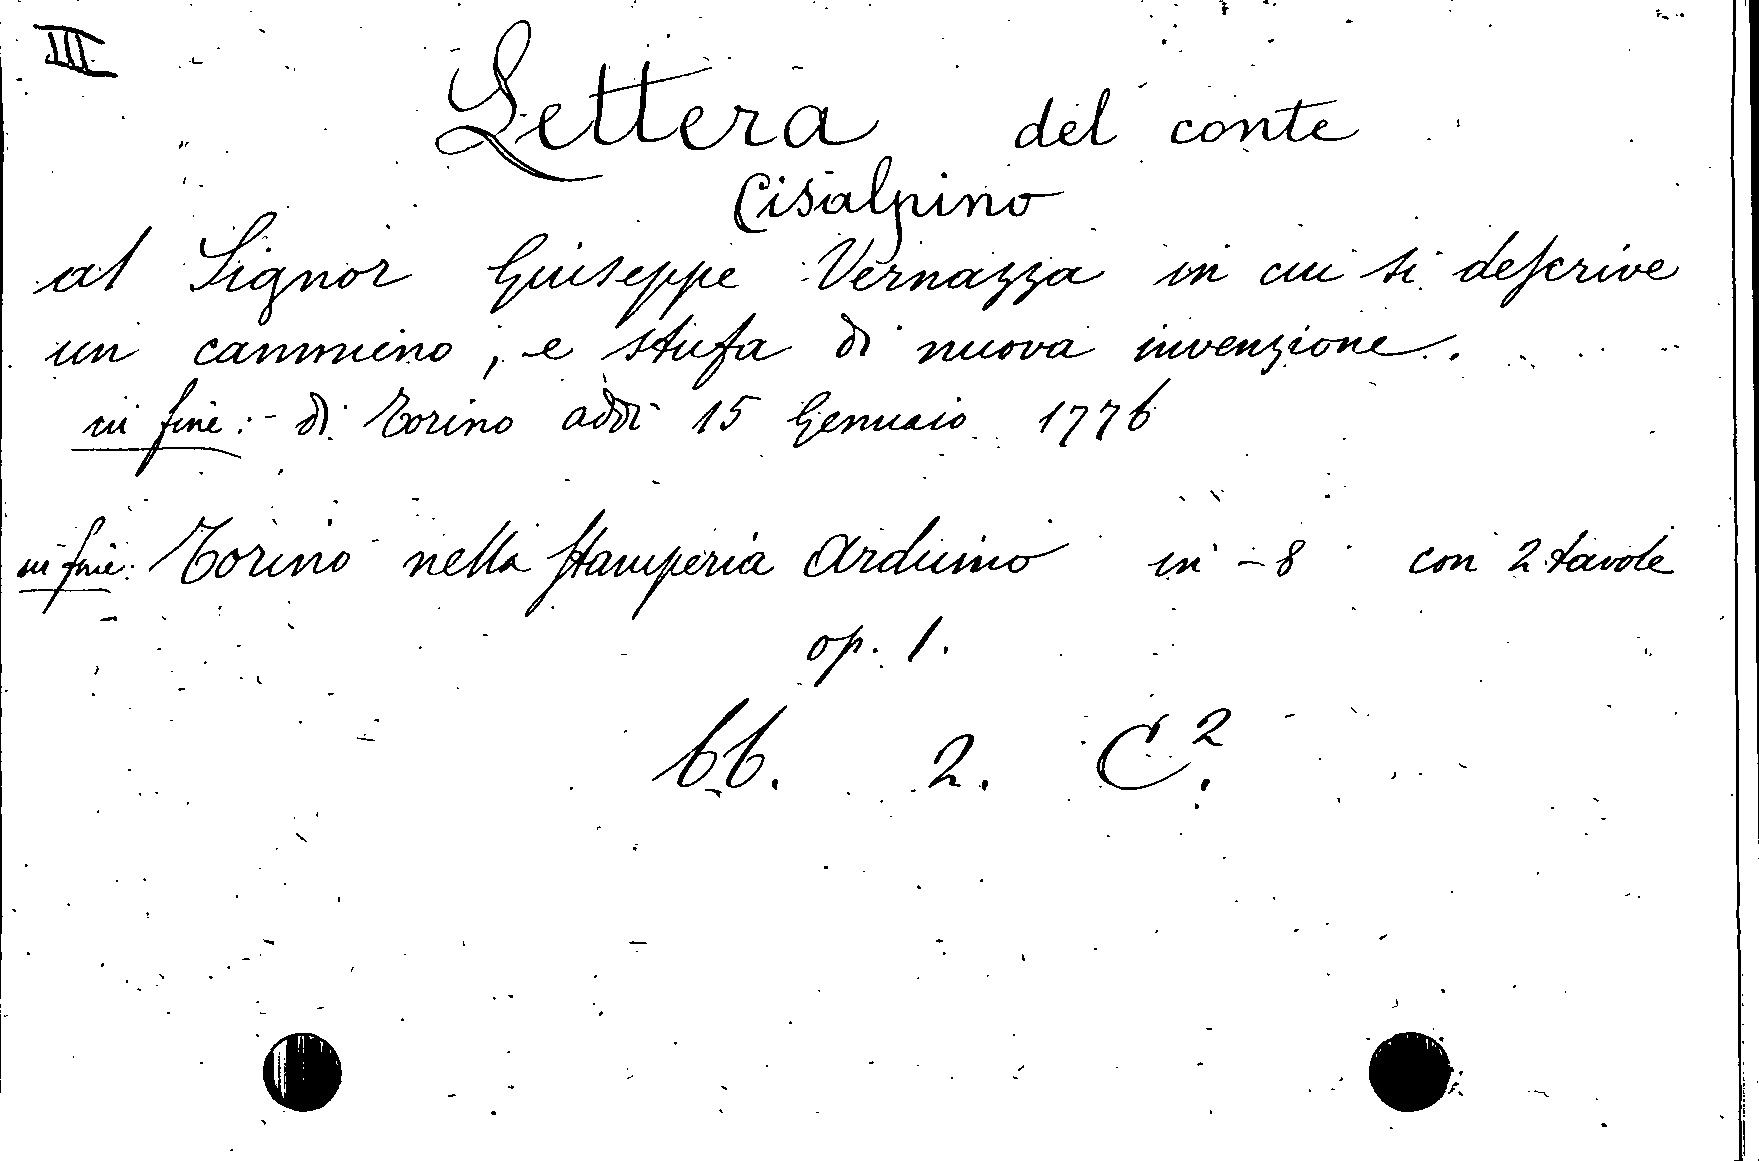 III
Lettera del conte
Cisalpino
al Signor Giuseppe Vernazza in cui si deſcrive
un cammino, e stufa di nuova invenzione.
in fine: - di Torino addì 15 Gennaio 1776
in fine: Torino nella ſtamperia Arduino in - 8 con 2 tavole
op. 1.
bb. 2. C².